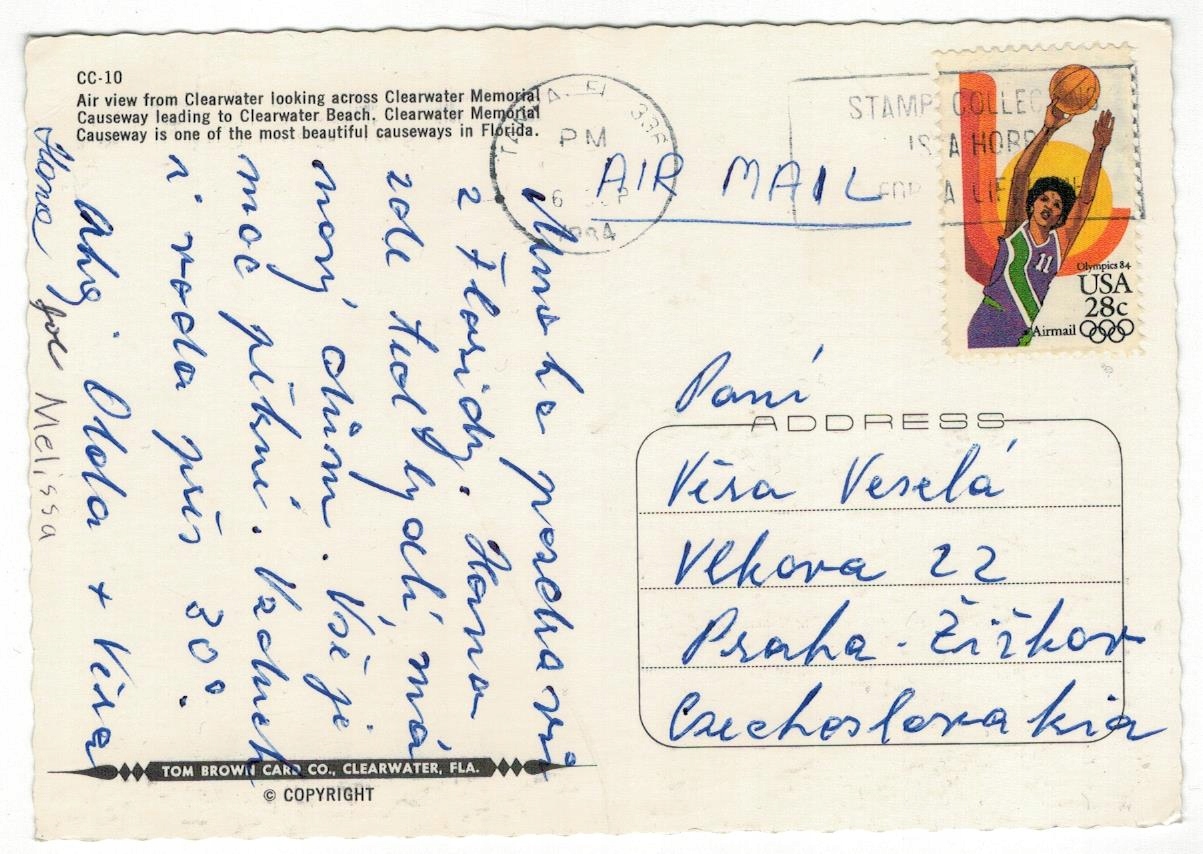 CC-10
Air view from Clearwater looking across Clearwater Memorial
Causeway leading to Clearwater Beach. Clearwater Memorial
Causeway is one of the most beautiful causeways in Florida.
TAMPA, FL 336
PM
6
1984
STAMP COLLECTING
IS A HOBBY
FOR A LIFETIME
AIR MAIL
Olympics 84
USA
28c
Airmail
11
Mnoho pozdravů
z Floridy. Hana
zde teď bydlí, má
nový dům. Vše je
moc pěkné. Vzduch
i voda přes 30°.
Ahoj Olda + Věra
Hana Joe Melissa
Paní
ADDRESS
Věra Veselá
Vlkova 22
Praha - Žižkov
Czechoslovakia
TOM BROWN CARD CO., CLEARWATER, FLA.
© COPYRIGHT